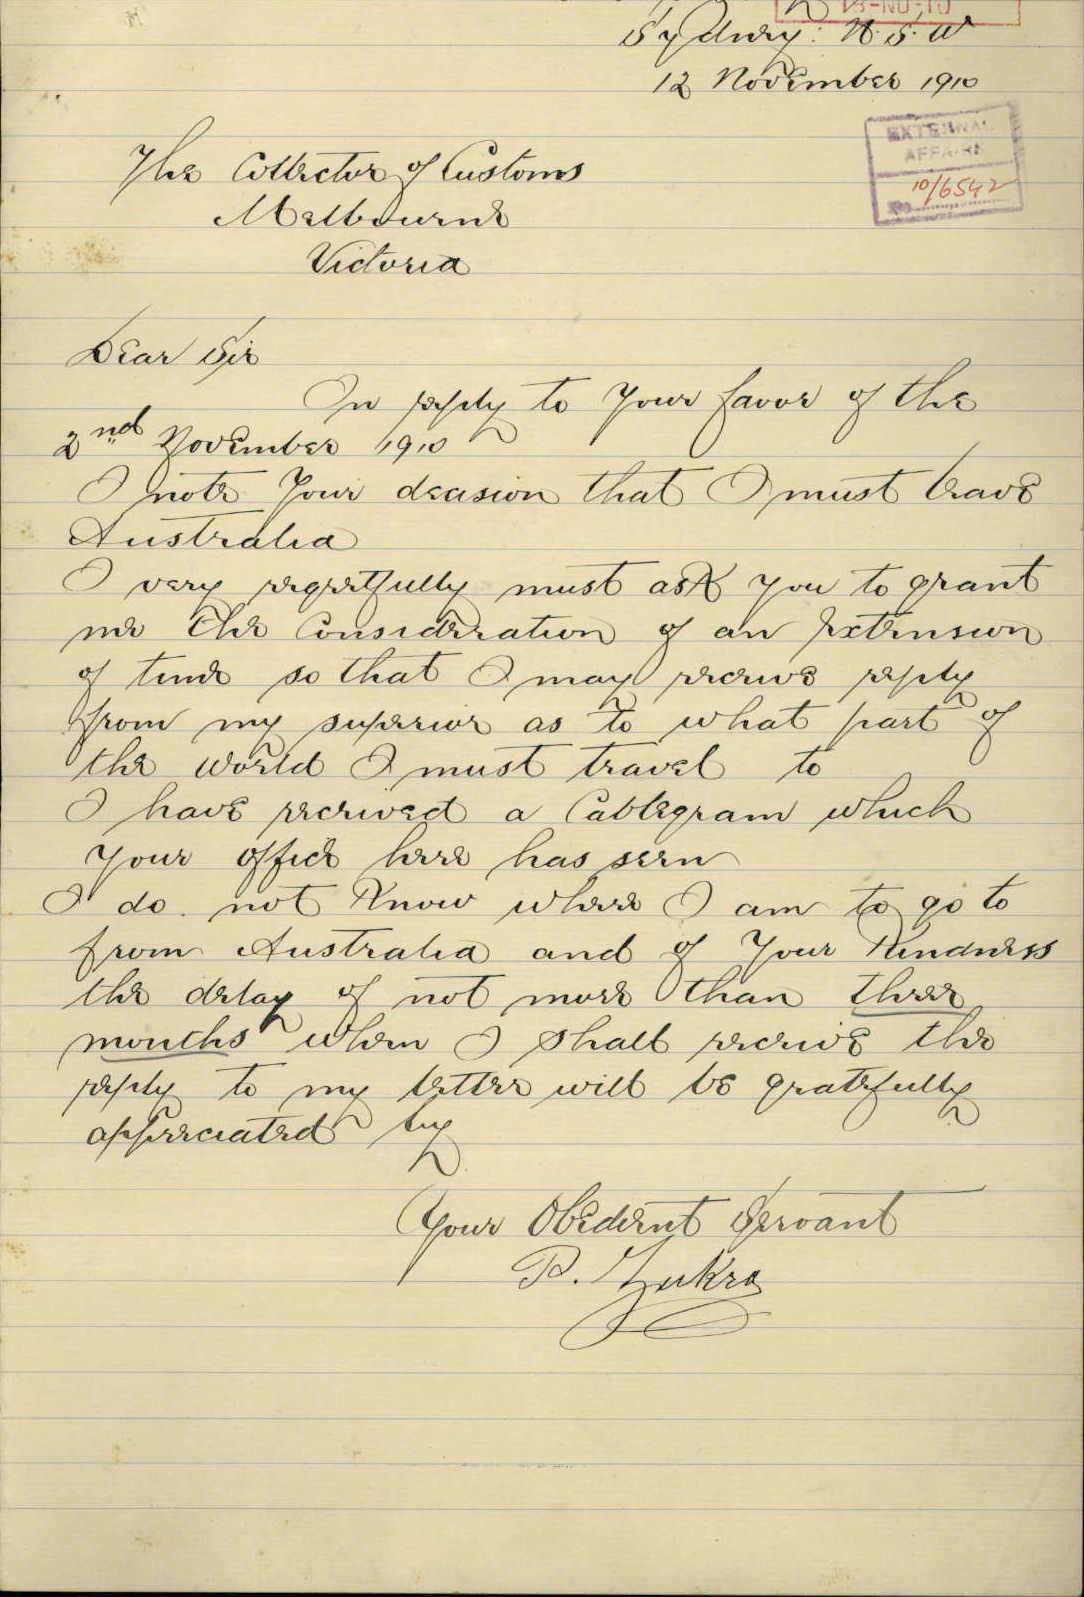 Sydney: N.S.W
12 November 1910
EXTERNAL
AFFAIRS
10/6542
The Collector of Customs
Melbourne
Victoria
Dear Sir
In reply to Your favor of the
2nd November 1910
I note Your decision that I must leave
Australia
I very regretfully must ask you to grant
me the Consideration of an extension
of time so that I may receive reply
from my superior as to what part of
the world I must travel to
I have received a Cablegram which
your office here has seen
I do not know where I am to go to
from Australia and of Your Kindness
the delay of not more than three
months when I shall receive the
reply to my letter will be gratefully
appreciated by
Your Obedient Servant